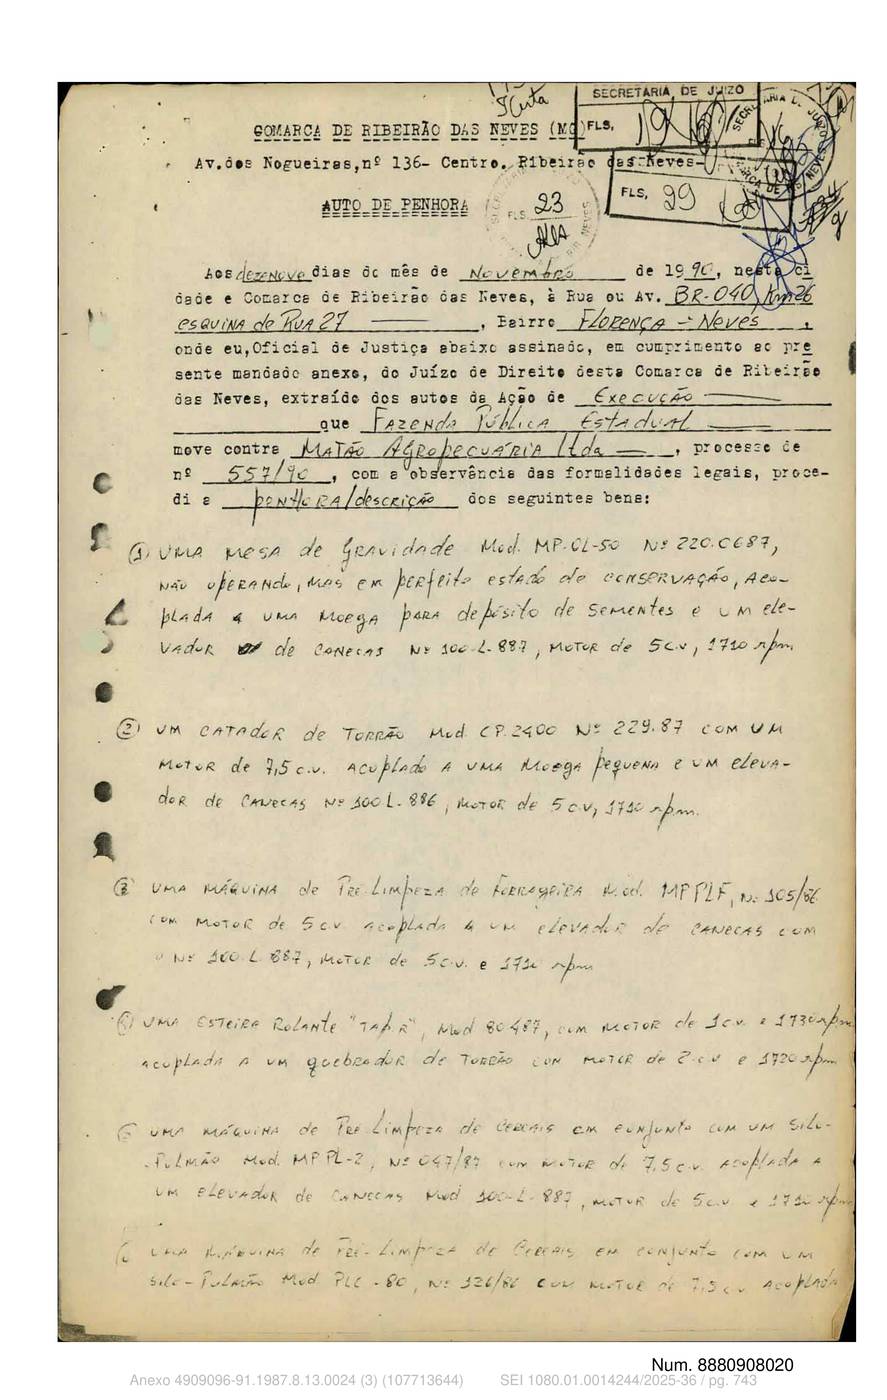 SECRETARIA DE JUIZO
FLS,
COMARCA DE RIBEIRÃO DAS NEVES (MG)
Av.dos Nogueiras,nº 136- Centro. Ribeirão das Neves-
FLS, 29
AUTO DE PENHORA
FLS. 23
Aos dezenove dias do mês de Novembro de 1990, nesta ci
dade e Comarca de Ribeirão das Neves, à Rua ou Av. BR-040, Km 26
esquina de Rua 27 , Bairro Florença - Neves ,
onde eu,Oficial de Justiça abaixo assinado, em cumprimento ao pre
sente mandado anexo, do Juízo de Direito desta Comarca de Ribeirão
das Neves, extraído dos autos da Ação de Execução
que Fazenda Pública Estadual
move contra Matão Agropecuária Ltda , processo de
nº 557/90 , com a observância das formalidades legais, proce-
di a penhora/descrição dos seguintes bens:
① Uma mesa de gravidade Mod. MP-CL-50 Nº 220.0687,
não operando, mas em perfeito estado de conservação, aco-
plada a uma moega para depósito de sementes e um ele-
vador de canecas Nº 100-L-887, motor de 5 c.v, 1710 rpm
② Um catador de torrão Mod. CP.2400 Nº 229.87 com um
motor de 7,5 c.v. acoplado a uma moega pequena e um eleva-
dor de canecas Nº 100 L-886, motor de 5 c.v, 1710 rpm.
③ Uma máquina de Pré Limpeza de forrageira Mod. MPPLF, Nº 105/86
com motor de 5 c.v acoplada a um elevador de canecas com
o Nº 100-L-887, motor de 5 c.v. e 1710 rpm
Uma esteira rolante "Tapir", Mod 80-487, com motor de 1 c.v. e 1730 rpm
acoplada a um quebrador de torrão com motor de 2 c.v e 1720 rpm
Uma máquina de Pré Limpeza de cereais em conjunto com um silo-
-Pulmão Mod. MPPL-2, Nº 047/87 com motor de 7,5 c.v. acoplada a
um elevador de canecas Mod 100-L-887, motor de 5 c.v e 1710 rpm
Uma máquina de Pré-Limpeza de cereais em conjunto com um
silo-Pulmão Mod PLC-80, Nº 126/86 com motor de 7,5 c.v acoplada
Num. 8880908020
Anexo 4909096-91.1987.8.13.0024 (3) (107713644) SEI 1080.01.0014244/2025-36 / pg. 743